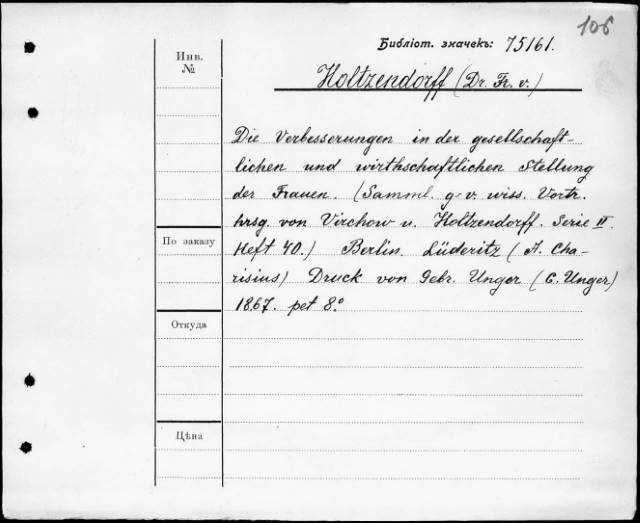 106
Библіот. значекъ: 75161.
Инв.
№
Holtzendorff (Dr. Fr. v.)
Die Verbesserungen in der gesellschaft-
lichen und wirthschaftlichen Stellung
der Frauen. (Samml. g. v. wiss. Vortr.
hrsg. von Virchow u. Holtzendorff. Serie II.
Heft 40.) Berlin. Lüderitz (A. Cha-
risius) Druck von Gebr. Unger (C. Unger)
1867. pet 8.°
По заказу
Откуда
Цѣна